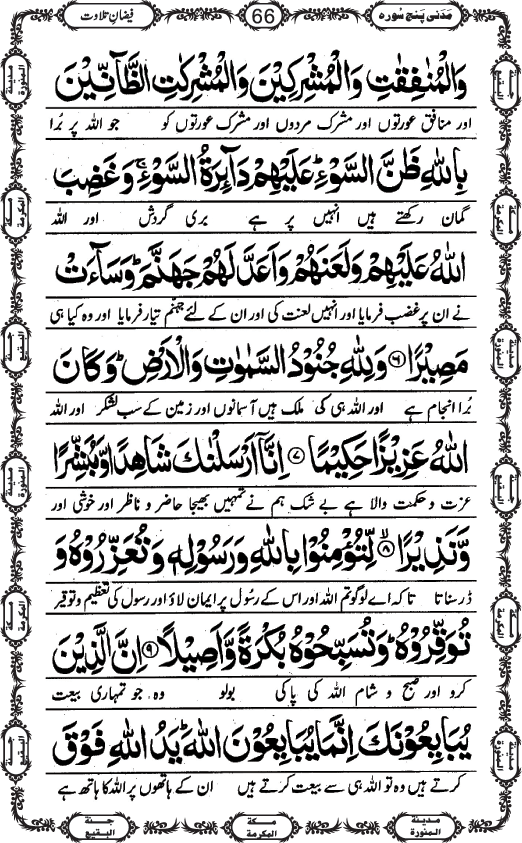 مَدَنی پَنج سُورہ 66 فیضانِ تلاوت
وَالْمُنٰفِقٰتِ وَالْمُشْرِكِیْنَ وَالْمُشْرِكٰتِ الظَّآنِّیْنَ
اور منافق عورتوں اور مشرک مردوں اور مشرک عورتوں کو جو اللہ پر بُرا
بِاللّٰهِ ظَنَّ السَّوْءِؕ عَلَیْهِمْ دَآىِٕرَةُ السَّوْءِۚ وَ غَضِبَ
گمان رکھتے ہیں انہیں پر ہے بری گردش اور اللہ
اللّٰهُ عَلَیْهِمْ وَ لَعَنَهُمْ وَ اَعَدَّ لَهُمْ جَهَنَّمَؕ وَ سَآءَتْ
نے ان پر غضب فرمایا اور انہیں لعنت کی اور ان کے لئے جہنم تیار فرمایا اور وہ کیا ہی
مَصِیْرًا ﴿۶﴾ وَ لِلّٰهِ جُنُوْدُ السَّمٰوٰتِ وَ الْاَرْضِؕ وَ كَانَ
بُرا انجام ہے اور اللہ ہی کی ملک ہیں آسمانوں اور زمین کے سب لشکر اور اللہ
اللّٰهُ عَزِیْزًا حَكِیْمًا ﴿۷﴾ اِنَّاۤ اَرْسَلْنٰكَ شَاهِدًا وَّ مُبَشِّرًا
عزت و حکمت والا ہے بے شک ہم نے تمہیں بھیجا حاضر و ناظر اور خوشی اور
وَّ نَذِیْرًاۙ ﴿۸﴾ لِّتُؤْمِنُوْا بِاللّٰهِ وَ رَسُوْلِهٖ وَ تُعَزِّرُوْهُ وَ
ڈر سناتا تاکہ اے لوگو تم اللہ اور اس کے رسُول پر ایمان لاؤ اور رسول کی تعظیم و توقیر
تُوَقِّرُوْهُؕ وَ تُسَبِّحُوْهُ بُكْرَةً وَّ اَصِیْلًا ﴿۹﴾ اِنَّ الَّذِیْنَ
کرو اور صبح و شام اللہ کی پاکی بولو وہ جو تمہاری بیعت
یُبَایِعُوْنَكَ اِنَّمَا یُبَایِعُوْنَ اللّٰهَؕ یَدُ اللّٰهِ فَوْقَ
کرتے ہیں وہ تو اللہ ہی سے بیعت کرتے ہیں ان کے ہاتھوں پر اللہ کا ہاتھ ہے
مدينة المنورة
جنة البقيع
مكة المكرمة
مدينة المنورة
جنة البقيع
مكة المكرمة
مدينة المنورة
جنة البقيع
مكة المكرمة
مدينة المنورة
جنة البقيع
مكة المكرمة
مدينة المنورة
جنة البقيع
مكة المكرمة
مدينة المنورة